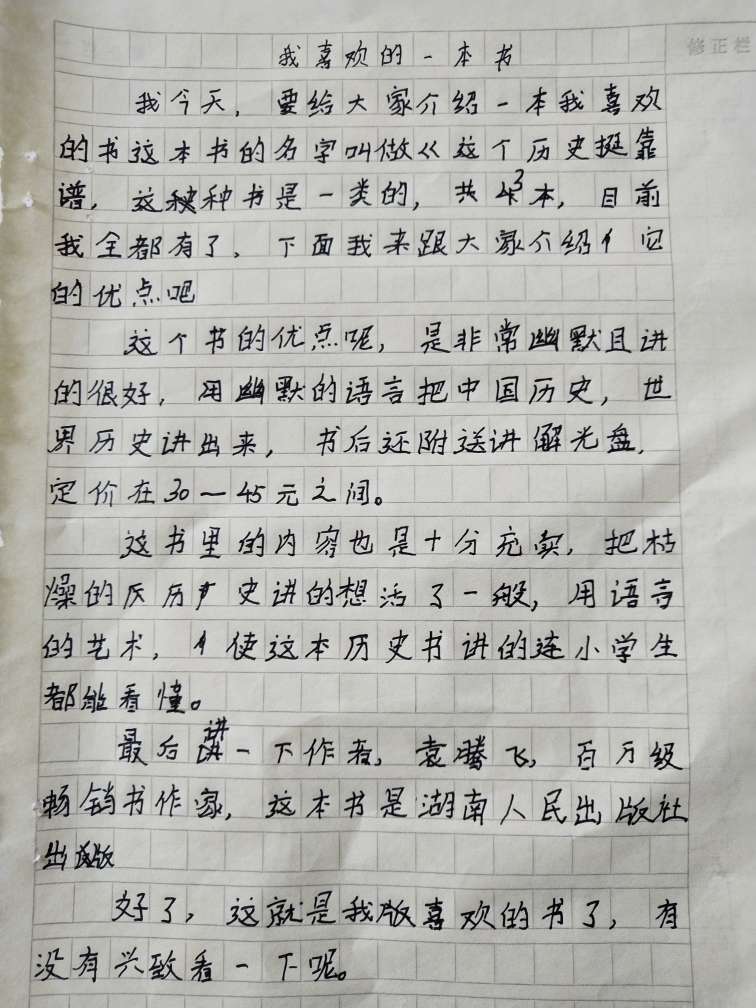 修正栏
我喜欢的一本书
我今天，要给大家介绍一本我喜欢
的书这本书的名字叫做《这个历史挺靠
谱，这种书是一类的，共3本，目前
我全都有了，下面我来跟大家介绍它
的优点吧
这个书的优点呢，是非常幽默且讲
的很好，用幽默的语言把中国历史，世
界历史讲出来，书后还附送讲解光盘，
定价在30—45元之间。
这书里的内容也是十分充实，把枯
燥的历史讲的想活了一般，用语言
的艺术，使这本历史书讲的连小学生
都能看懂。
最后讲一下作者，袁腾飞，百万级
畅销书作家，这本书是湖南人民出版社
出版
好了，这就是我版喜欢的书了，有
没有兴致看一下呢。